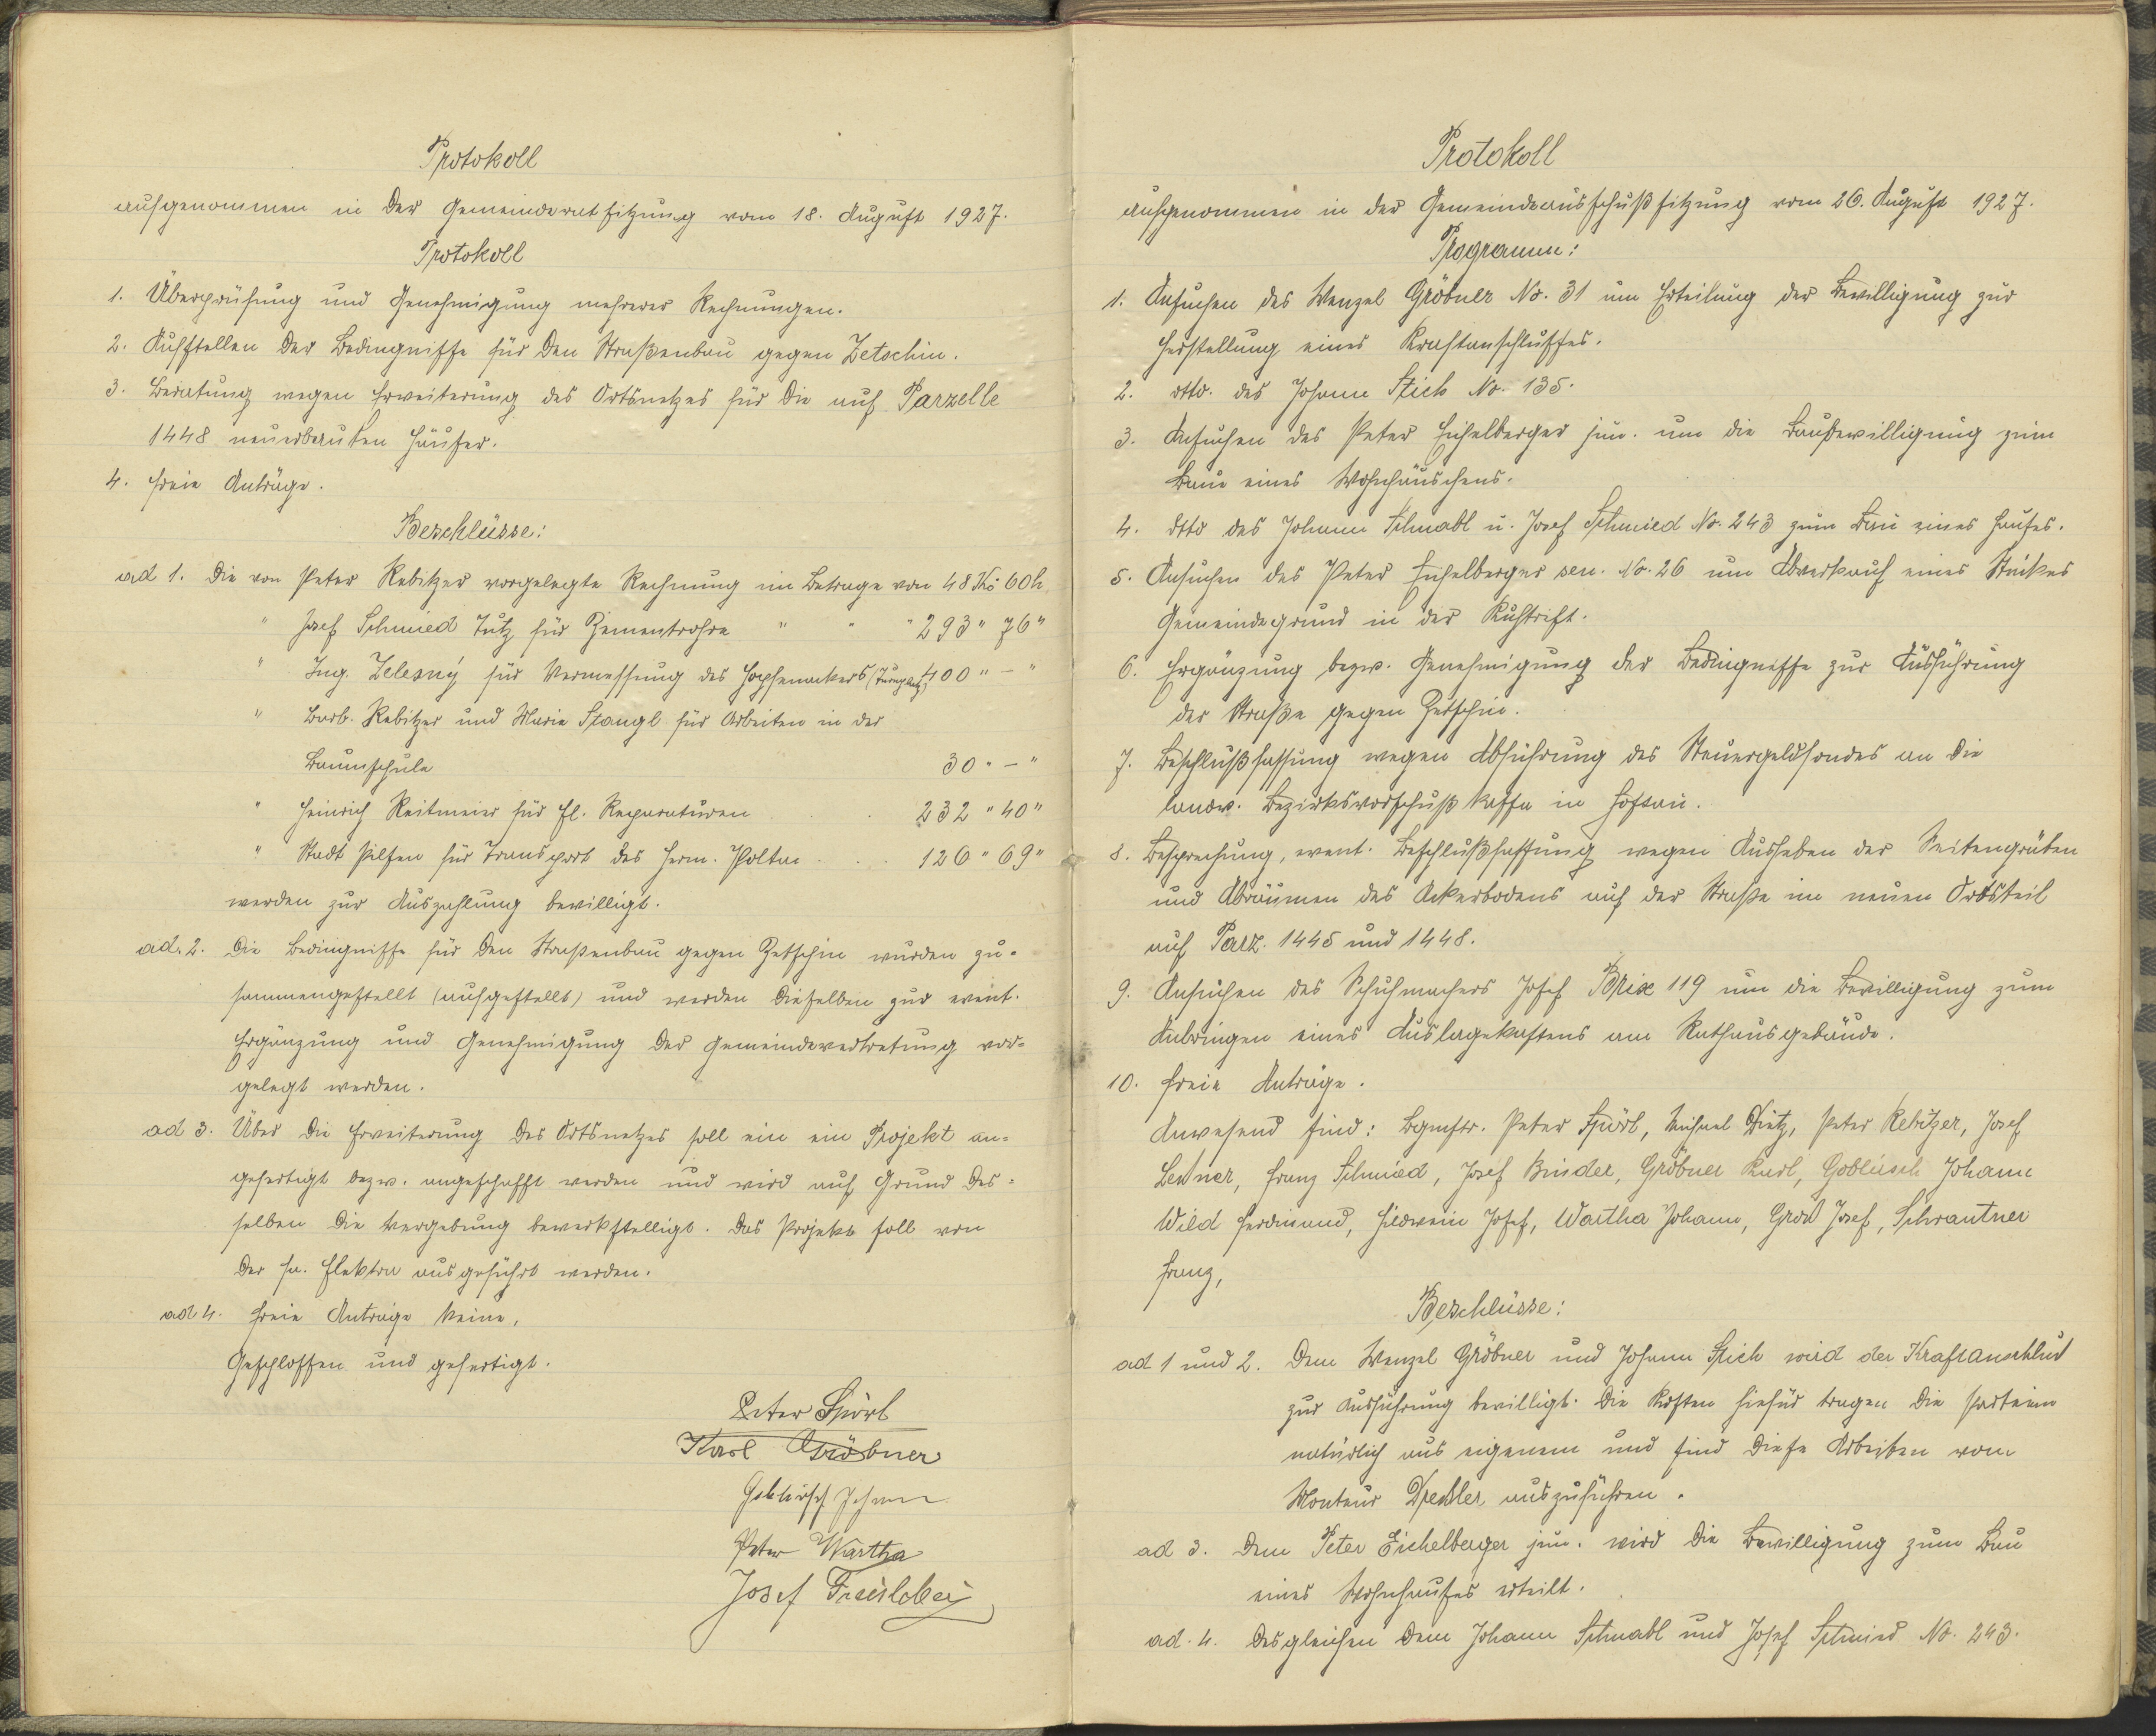 Protokoll
aufgenommen in der Gemeinderatsitzung vom 18. August 1927.
Protokoll
1. Überprüfung und Genehmigung mehrerer Rechnungen.
2. Aufstellen der Bedingnisse für den Straßenbau gegen Zetschin.
3. Beratung wegen Erweiterung des Ortsnetzes für die auf Parzelle
1448 neuerbauten Häuser.
4. Freie Anträge.
Beschlüsse:
ad 1. Die von Peter Rebitzer vorgelegte Rechnung im Betrage von 48 Kč 60 h
" Josef Schmied Tutz für Zementrohre " " " 293 " 76 "
" Ing. Zelezný für Vermessung des Hopfenackers (Turnplatz) 400 " - "
" Barb. Rebitzer und Maria Stangl für Arbeiten in der
Baumschule 30 " - "
" Heinrich Reitmeier für El. Reparaturen . . 232 " 40 "
" Stadt Pilsen für Transport des Herm. Polta . . . 126 " 69 "
werden zur Auszahlung bewilligt.
ad. 2. Die Bedingnisse für den Straßenbau gegen Zetschin wurden zu-
sammengestellt (aufgestellt) und werden dieselben zur event.
Ergänzung und Genehmigung der Gemeindevertretung vor-
gelegt werden.
ad 3. Über die Erweiterung des Ortsnetzes soll ein ein Projekt an-
gefertigt bezw. angeschafft werden und wird auf Grund des-
selben die Vergebung bewerkstelligt. Das Projekt soll von
der Fa. Elektra ausgeführt werden.
ad 4. Freie Anträge keine.
Geschlossen und gefertigt.
Peter Spörl
Karl Gröbner
Goblirsch Johann
Peter Wartha
Josef
Protokoll
aufgenommen in der Gemeindeausschußsitzung vom 26. August 1927.
Programm:
1. Ansuchen des Wenzel Gröbner No. 31 um Erteilung der Bewilligung zur
Herstellung eines Kraftanschlusses.
2. dtto. des Johann Stich No. 135.
3. Ansuchen des Peter Eichelberger jun. um die Baubewilligung zum
Baue eines Wohnhäuschens.
4. dtto des Johann Schnabl u. Josef Schmied No. 243 zum Bau eines Hauses.
5. Ansuchen des Peter Eichelberger sen. No. 26 um Abverkauf eines Stückes
Gemeindegrund in der Kuhtrift.
6. Ergänzung bezw. Genehmigung der Bedingnisse zur Ausführung
der Straße gegen Zetschin.
7. Beschlußfassung wegen Abführung des Steuergeldfondes an die
landw. Bezirksvorschußkasse in Hostau.
8. Besprechung, event. Beschlußfassung wegen Ausheben der Seitengräben
und Abräumen des Ackerbodens auf der Straße im neuen Ortsteil
auf Parz. 1445 und 1448.
9. Ansuchen des Schuhmachers Josef Brix 119 um die Bewilligung zum
Anbringen eines Auslagekastens am Rathausgebäude.
10. Freie Anträge.
Anwesend sind: Bgmstr. Peter Spörl, Michael Dietz, Peter Rebitzer, Josef
Leitner, Franz Schmied, Josef Binder, Gröbner Karl, Goblirsch Johann
Wild Ferdinand, Hildwein Josef, Wartha Johann, Groß Josef, Schrantner
Franz,
Beschlüsse:
ad 1 und 2. Dem Wenzel Gröbner und Johann Stich wird der Kraftanschluß
zur Ausführung bewilligt. Die Kosten hiefür tragen die Parteien
natürlich aus eigenem und sind diese Arbeiten vom
Monteur Drexler auszuführen.
ad 3. Dem Peter Eichelberger jun. wird die Bewilligung zum Bau
eines Wohnhauses erteilt.
ad. 4. Desgleichen dem Johann Schnabl und Josef Schmied No. 243.